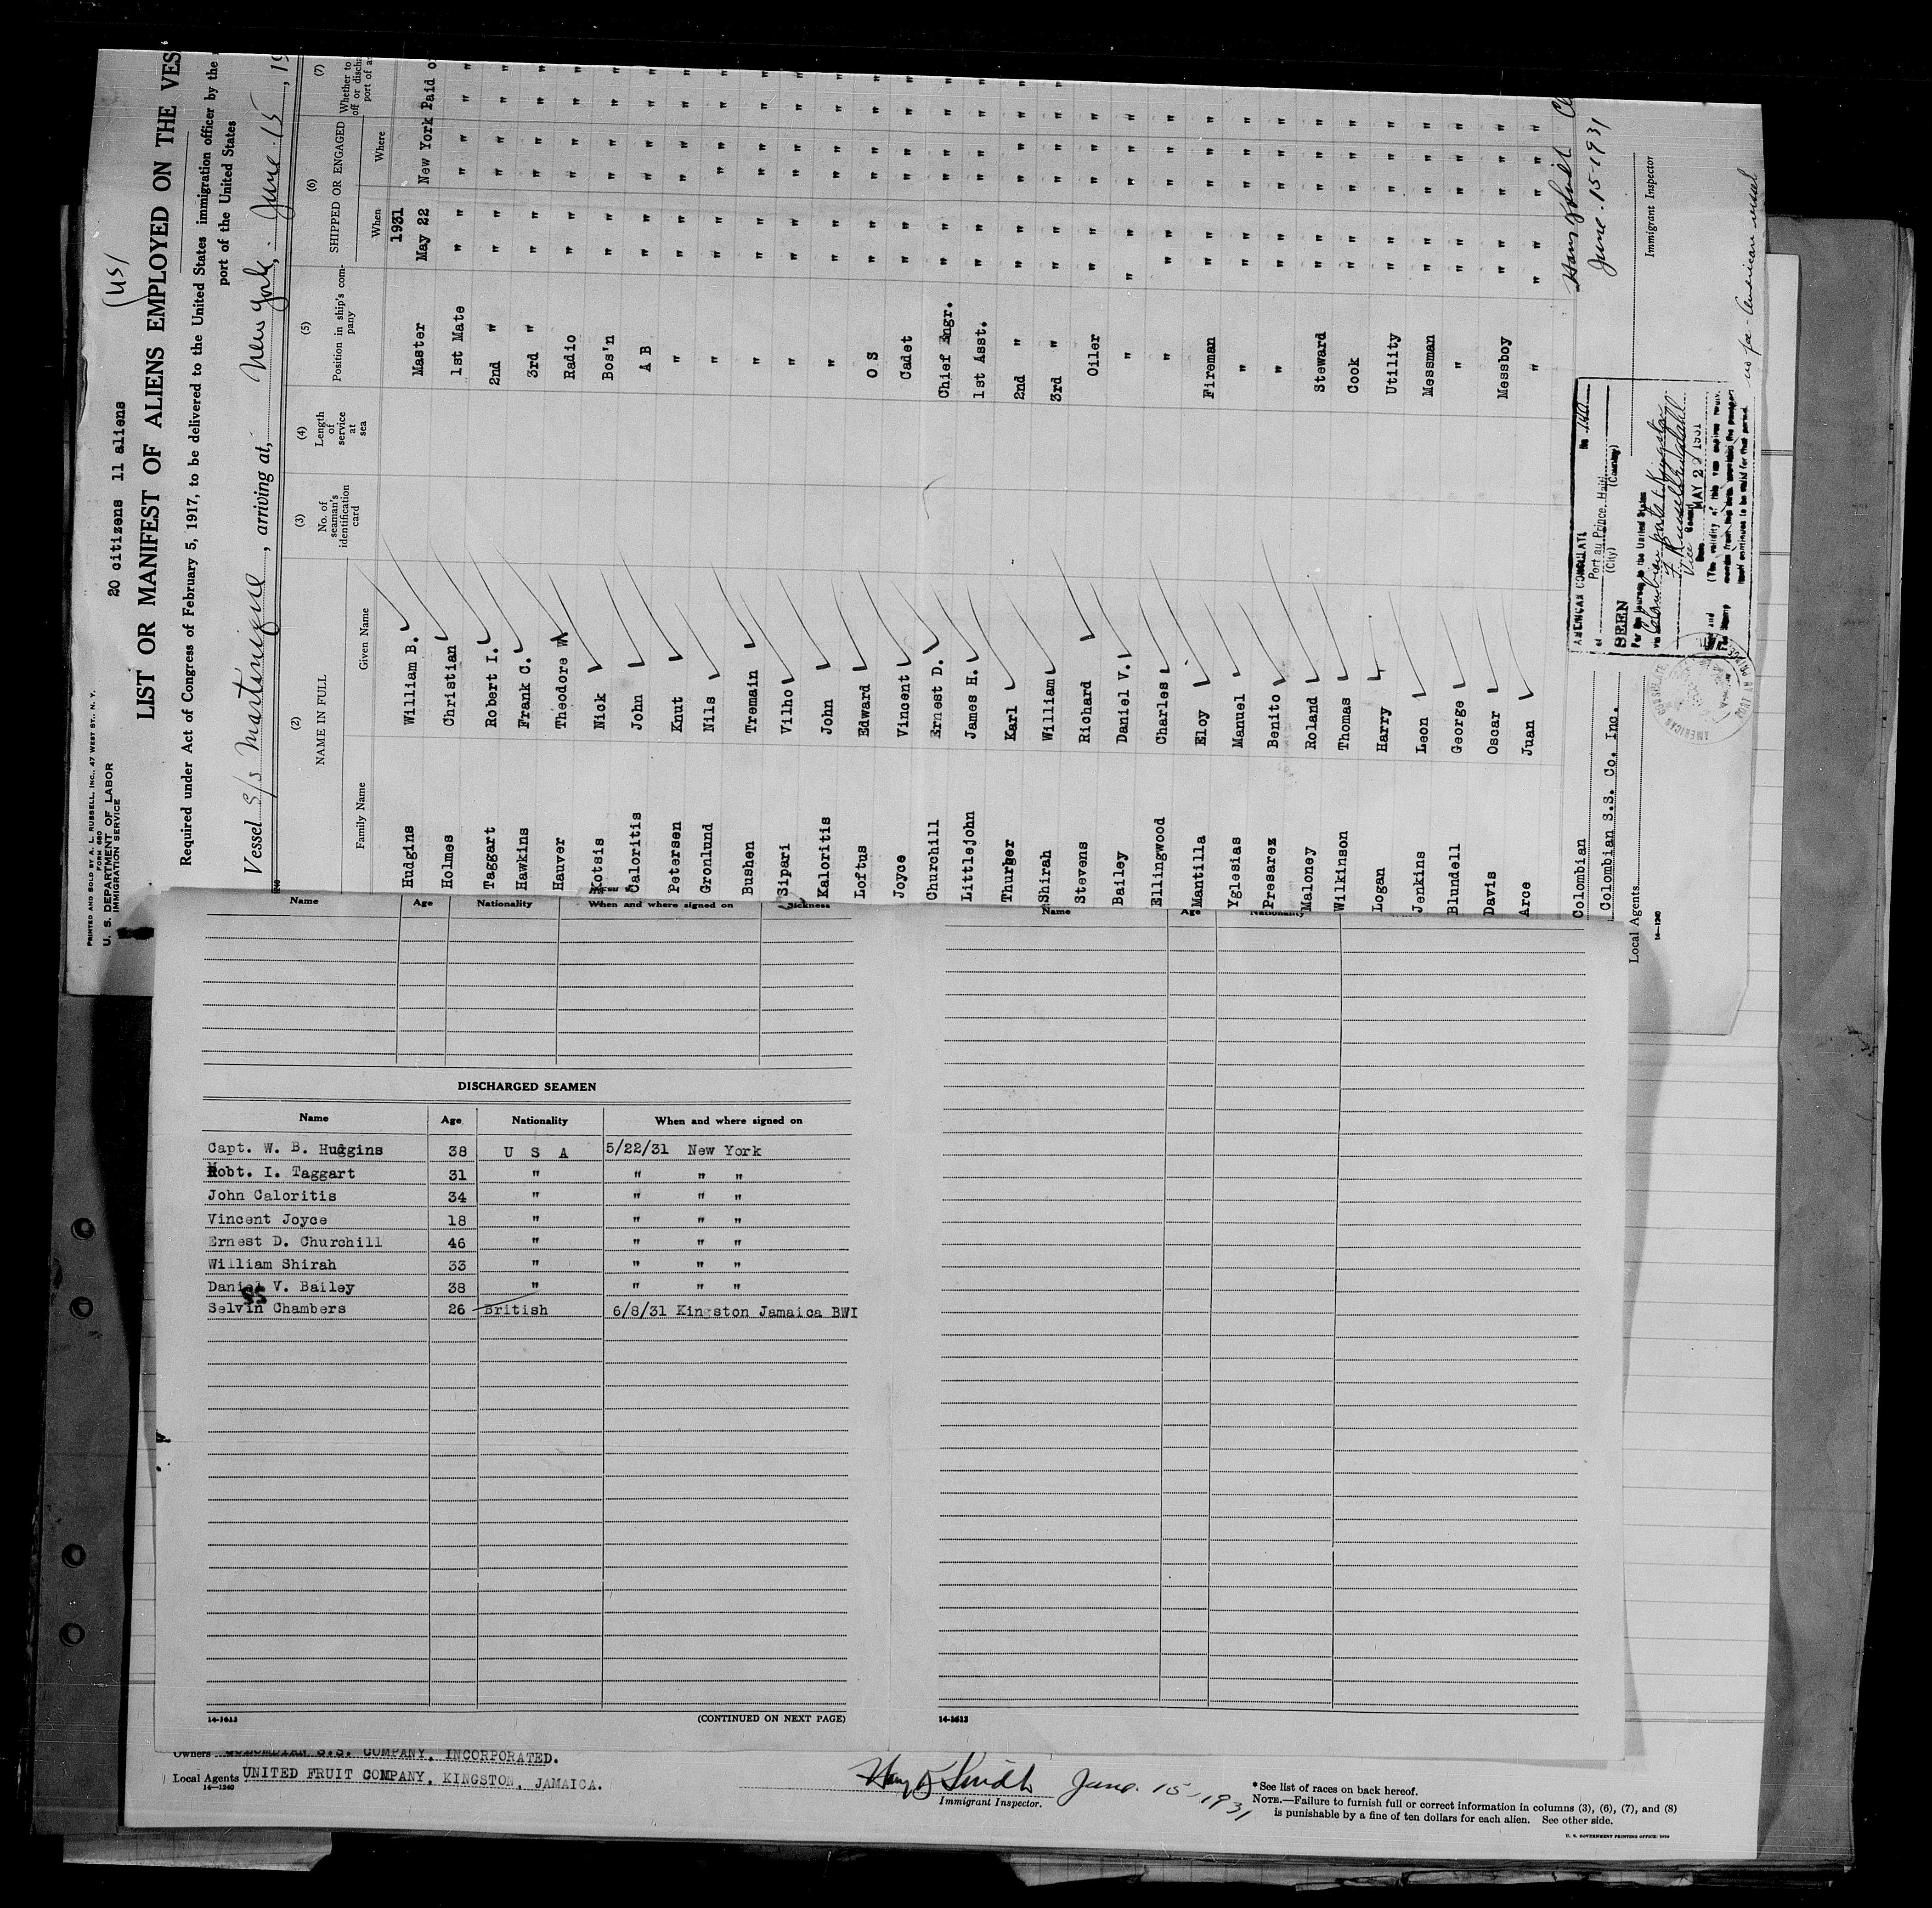 PRINTED AND SOLD BY A. L. RUSSELL, INC., 47 WEST ST., N. Y.
FORM 680
U. S. DEPARTMENT OF LABOR
IMMIGRATION SERVICE
20 citizens 11 aliens
(US)
LIST OR MANIFEST OF ALIENS EMPLOYED ON THE VES
Required under Act of Congress of February 5, 1917, to be delivered to the United States immigration officer by the
port of the United States
Vessel S/s Martinique, arriving at, New York, June 15, 19
(2) (3) (4) (5) (6) (7)
NAME IN FULL No. of seaman's identification card Length of service at sea Position in ship's company SHIPPED OR ENGAGED Whether to
Family Name Given Name When Where
1931
Hudgins William B. Master May 22 New York Paid
Holmes Christian 1st Mate " " " " "
Taggart Robert I. 2nd " " " " " "
Hawkins Frank C. 3rd " " " " " "
Hauver Theodore W Radio " " " " "
Kotsis Nick Bos'n " " " " "
Caloritis John A B " " " " "
Petersen Knut " " " " " "
Gronlund Nils " " " " " "
Bushen Tremain " " " " " "
Sipari Vilho " " " " " "
Kaloritis John " " " " " "
Loftus Edward O S " " " " "
Joyce Vincent Cadet " " " " "
Churchill Ernest D. Chief Engr. " " " " "
Littlejohn James H. 1st Asst. " " " " "
Thurber Karl 2nd " " " " " "
Shirah William 3rd " " " " " "
Stevens Richard Oiler " " " " "
Bailey Daniel V. " " " " " "
Ellingwood Charles " " " " " "
Mantilla Eloy Fireman " " " " "
Yglesias Manuel " " " " " "
Presarez Benito " " " " " "
Maloney Roland Steward " " " " "
Wilkinson Thomas Cook " " " " "
Logan Harry Utility " " " " "
Jenkins Leon Messman " " " " "
Blundell George " " " " " "
Davis Oscar Messboy " " " " "
Arce Juan " " " " "
Colombian
Colombian S.S. Co. Inc.
Local Agents
14—1240
AMERICAN CONSULATE No. 140
at Port au Prince, Haiti
(City) (Country)
SEEN
For the journey to the United States
via Colombian ports & Kingston
Vice Consul
Date MAY 2 1931
(The validity of this visa expires
AMERICAN CONSULATE
June 15-1931
Immigrant Inspector
no fee - American vessel
Name Age Nationality When and where signed on Sickness
Name Age Nationality
DISCHARGED SEAMEN
Name Age Nationality When and where signed on
Capt. W. B. Hudgins 38 U S A 5/22/31 New York
Robt. I. Taggart 31 " " " "
John Caloritis 34 " " " "
Vincent Joyce 18 " " " "
Ernest D. Churchill 46 " " " "
William Shirah 33 " " " "
Daniel V. Bailey 38 " " " "
SS
Selvin Chambers 26 British 6/8/31 Kingston Jamaica BWI
14-1613 (CONTINUED ON NEXT PAGE)
14-1613
Owners COLOMBIAN S.S. COMPANY, INCORPORATED.
Local Agents UNITED FRUIT COMPANY, KINGSTON, JAMAICA.
14—1240
June 15-1931
Immigrant Inspector.
* See list of races on back hereof.
NOTE.—Failure to furnish full or correct information in columns (3), (6), (7), and (8)
is punishable by a fine of ten dollars for each alien. See other side.
U. S. GOVERNMENT PRINTING OFFICE: